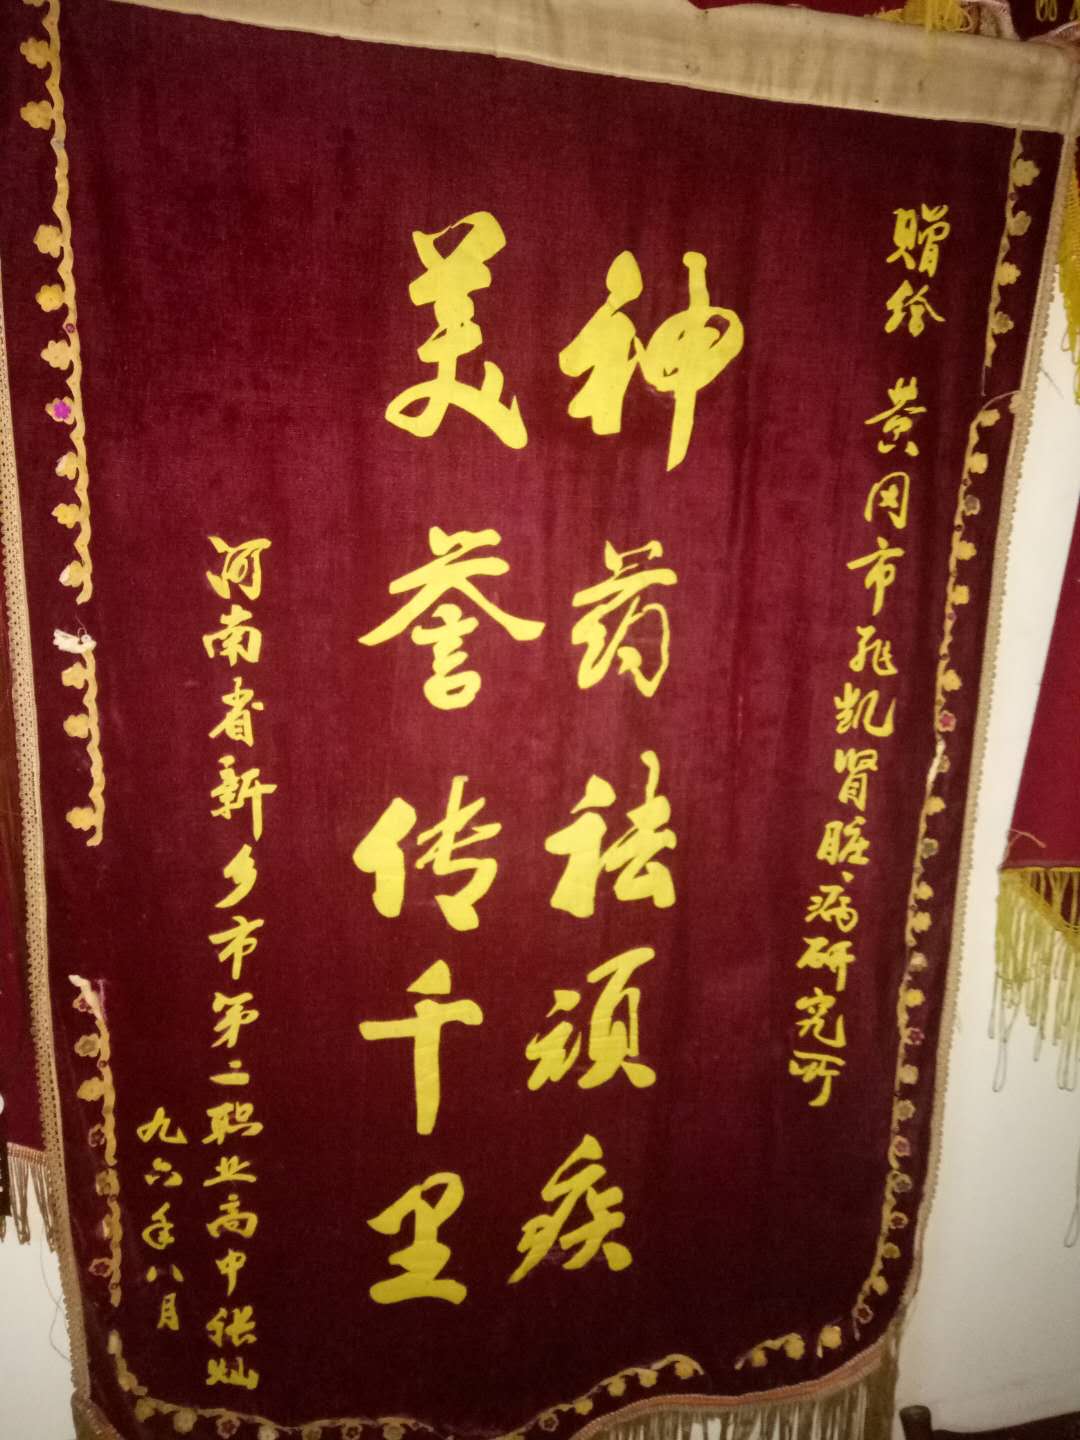 赠给 黄冈市飛凯肾脏病研究所
神药祛顽疾
美誉传千里
河南省新乡市第二职业高中张灿
九六年八月